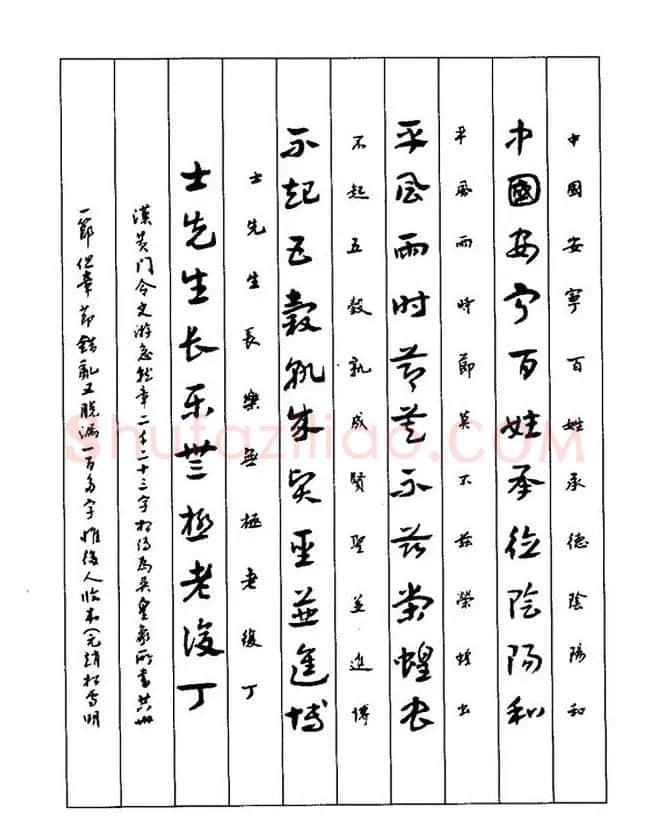 中國安寧百姓承德陰陽和
中國安宁百姓承德陰陽和
平風雨時節莫不茲榮蝗出
平風雨时节莫不兹荣蝗虫
不起五穀孰成賢聖並進博
不起五穀孰成賢聖並進博
士先生長樂無極老復丁
士先生长乐無極老復丁
漢黄门令史游急就章二千二十三字相传為吴皇象所書共卅
一節但章節錯亂又脱漏一百多字惟後人临本(元趙松雪明
Shufaziliao.COM